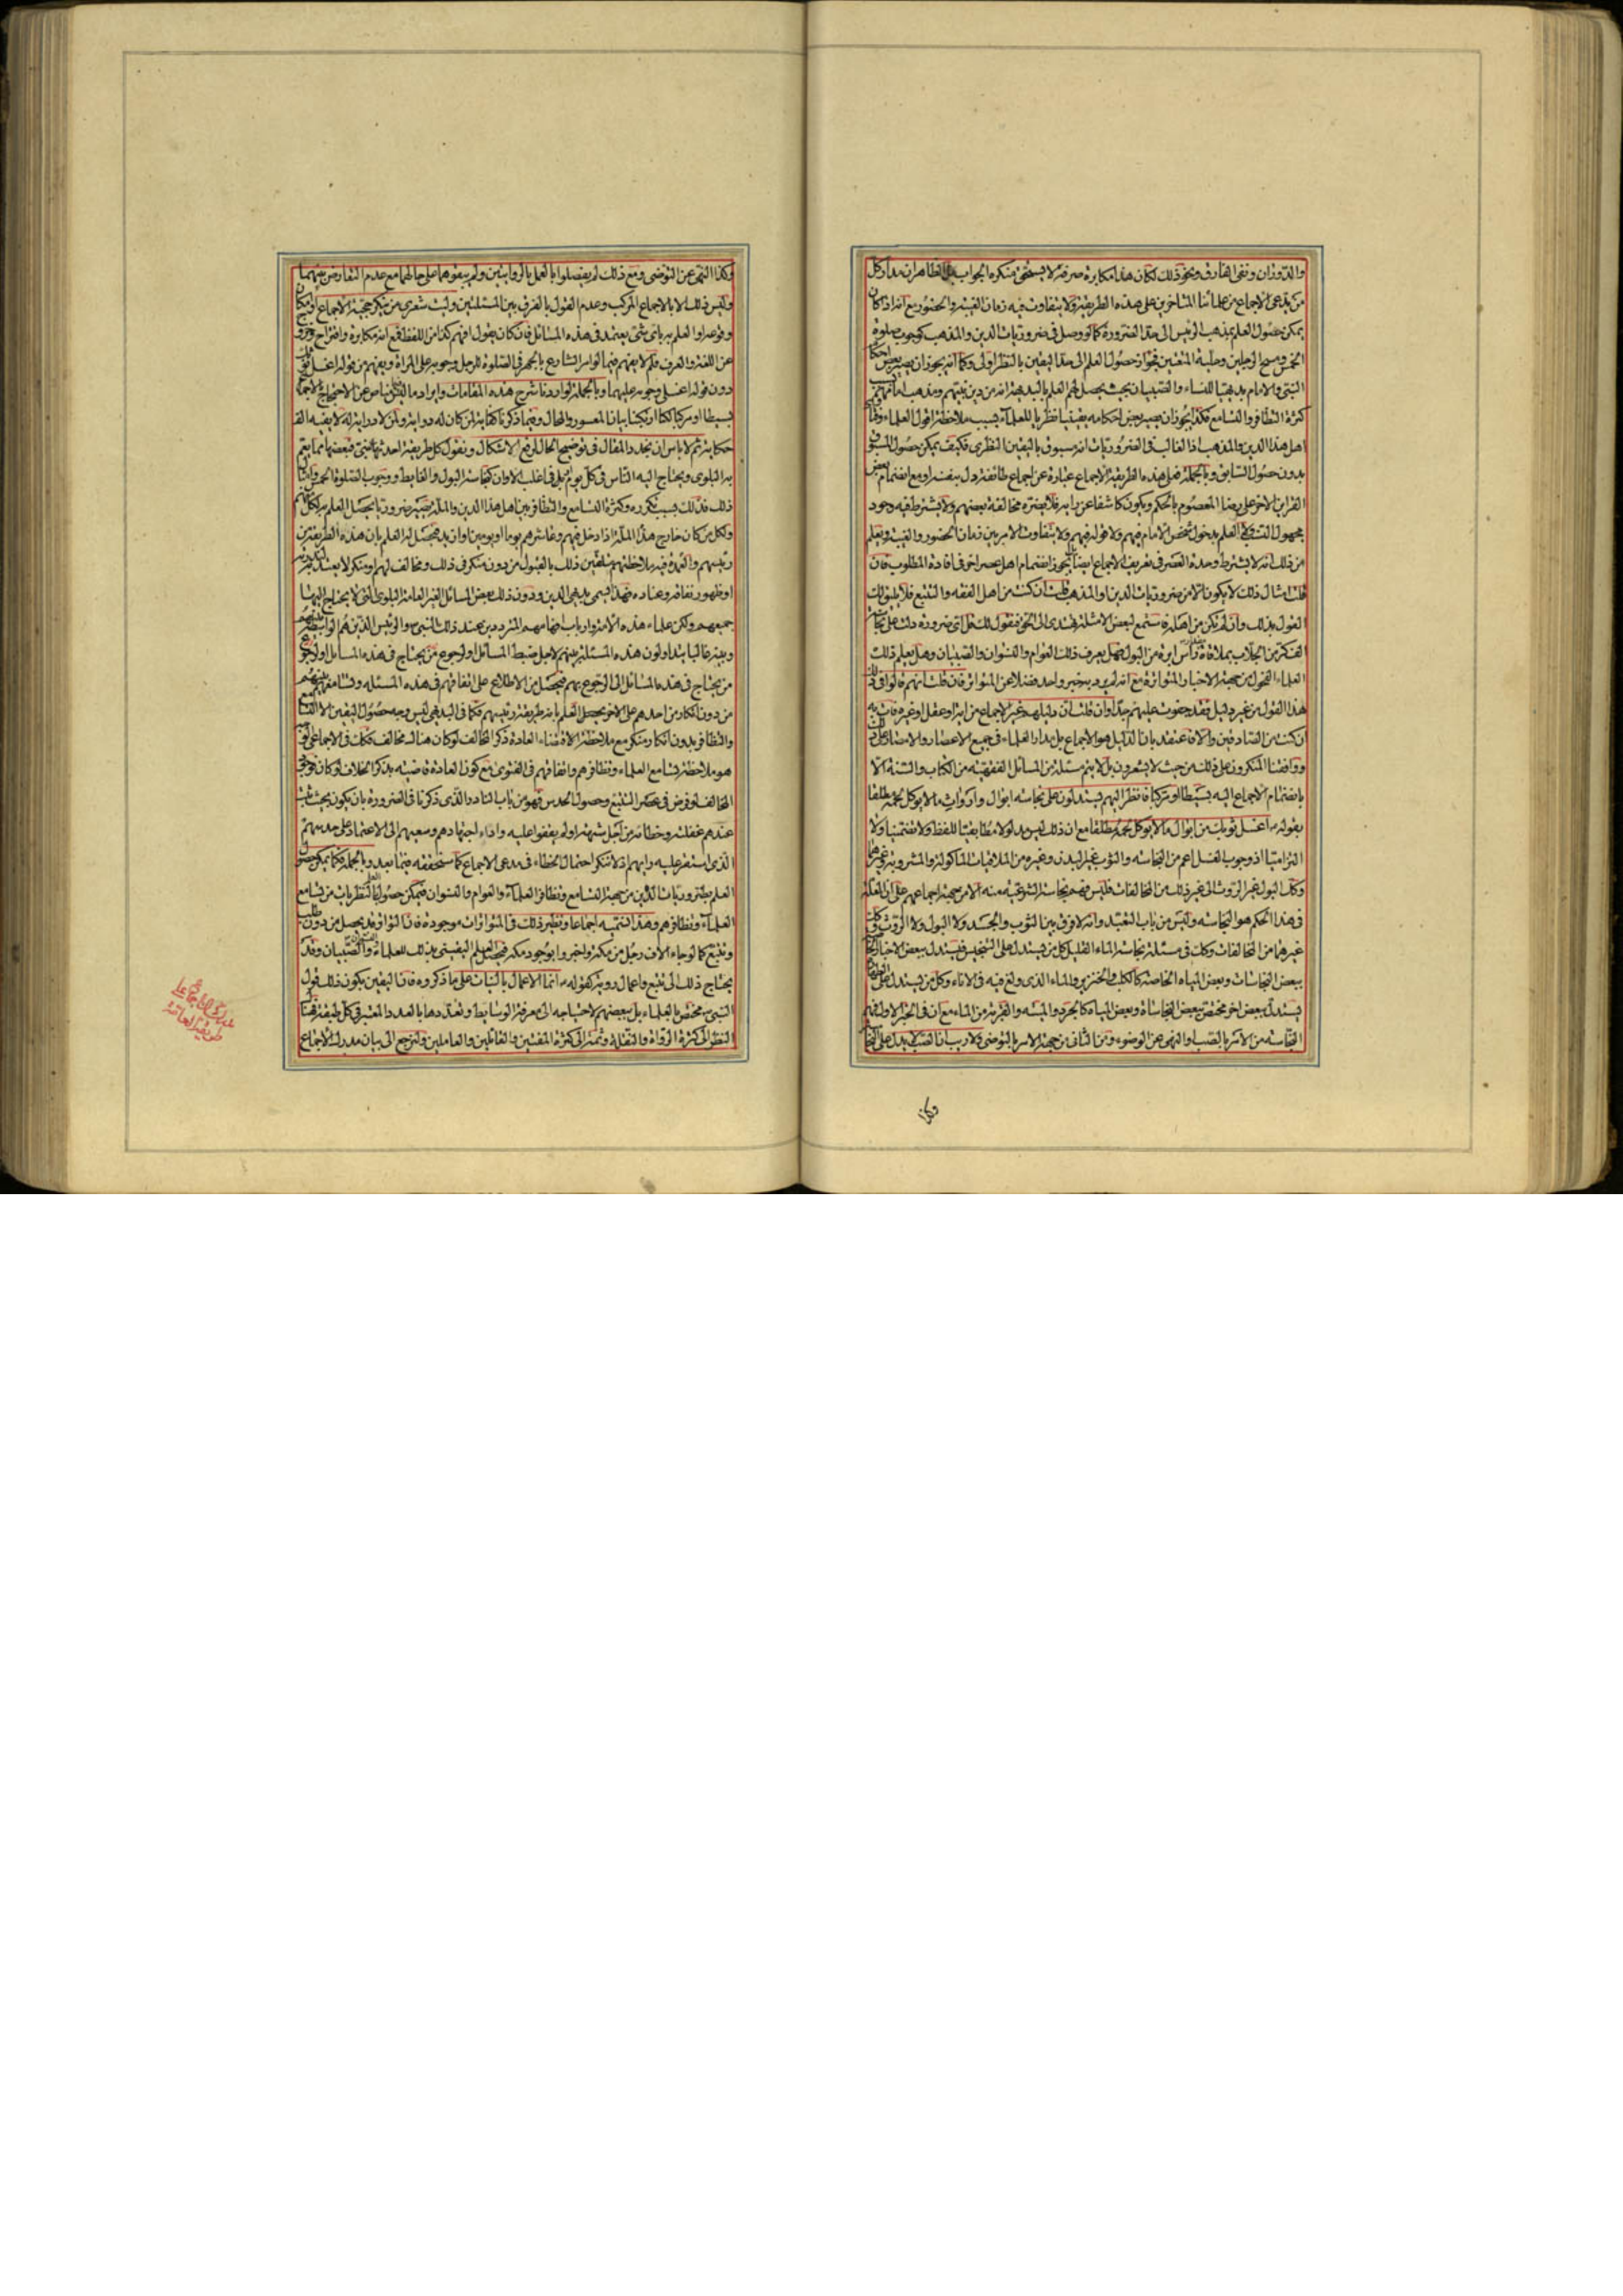 والدوران ونفى الفارق ونحو ذلك لكان هذا مكابرة صرفة لا يستحق منكره الجواب الظاهر ان مدار كل
من يدعى الاجماع من علمائنا المتأخرين على هذه الطريقة ولا يتفاوت فيه زمان الغيبة والحضور مع انه اذا كان
يمكن حصول العلم بمذهب الرئيس الى حد الضرورة كما لو وصل فى ضروريات الدين والمذهب كوجوب صلوة
الخمس ومسح الرجلين وحلية المتعتين فجواز حصول العلم الى حد اليقين بالنظر اولى وكما انه يجوز ان يصير بعض احكام
النبى والامام بديهيا للنساء والصبيان بحيث يحصل لهم العلم بالبديهة انه من دين نبيهم ومذهب امامهم بسبب
كثرة التظافر والتسامع فكذا يجوز ان يصير بعض احكامه يقينيا نظريا للعلماء بسبب ملاحظة اقوال العلماء وفتاوى
اهل هذا الدين والمذهب اذ الغالب فى الضروريات انه مسبوق باليقين النظرى فكيف يمكن حصول المسبوق
بدون حصول السابق وبالجملة فعلى هذه الطريقة الاجماع عبارة عن اجماع طائفة دل بنفسه او مع انضمام بعض
القرائن الاخر على رضا المعصوم بالحكم ويكون كاشفا عن رايه فلا يضره مخالفة بعضهم ولا يشترط فيه وجود
مجهول النسب ولا العلم بدخول شخص الامام فيهم ولا قوله فيهم ولا يتفاوت الامر بين زمان الحضور والغيبة ويعلم
من ذلك انه لا يشترط وحدة العصر فى تعريف الاجماع ايضا فيجوز انضمام اهل عصر اخر فى افادة المطلوب فان
قلت امثال ذلك لا يكون الا من ضروريات الدين او المذهب قلت ان كنت من اهل الفقه والتتبع فلا يليق لك
القول بذلك وان لم تكن من اهله فاستمع لبعض الامثلة تهتدى الى الحق فنقول لك على اى ضرورة دلت على نجاسة
الف كر من الجلاب بملاقاة راس ابرة من البول فهل يعرف ذلك العوام والنسوان والصبيان وهل يعلم ذلك
العلماء الفحول من جهة الاخبار المتواترة مع انه لم يرد به خبر واحد فضلا عن المتواتر فان قلت انهم قالوا فى ذلك
هذا القول من غير دليل فقد جفوت عليهم جدا وان قلت ان دليلهم غير الاجماع من اية او عقل او غيره فات به
ان كنت من الصادقين والا فاعتقد بان الدليل هو الاجماع بل مدار العلماء فى جميع الاعصار والامصار على ذلك
ووافقنا المنكرون على ذلك من حيث لا يشعرون بل لا يتم مسئلة من المسائل الفقهية من الكتاب والسنة الا
بانضمام الاجماع اليه بسيطا او مركبا فانظر اليهم يستدلون على نجاسة ابوال وارواث ما لا يؤكل لحمه مطلقا
بقوله اغسل ثوبك من ابوال ما لا يؤكل لحمه مطلقا مع ان ذلك ليس مدلولا مطابقيا للفظ ولا تضمنيا ولا
التزاميا اذ وجوب الغسل اعم من النجاسة والثوب غير البدن وغيره من الملاقيات الماكولة والمشروبة وغيرها
وكك البول غير الروث الى غير ذلك من المخالفات فليس فهم نجاسة الشرعية منه الا من جهة اجماعهم على ان العلة
فى هذا الحكم هو النجاسة وليس من باب التعبد وانه لا فرق بين الثوب والجسد ولا البول ولا الروث وكك
غيرهما من المخالفات وكك فى مسئلة نجاسة الماء القليل كل من يستدل على التنجيس فيستدل ببعض الاخبار الخاصة
ببعض النجاسات وبعض المياه الخاصة كالكلب والخنزير والماء الذى ولغ فيه فى الاناء وكل من يستدل على الطهارة
يستدل ببعض اخر مختص ببعض النجاسات وبعض المياه كالجرذ والميتة والقربة من الماء مع ان فى الخبر الاول فهم
النجاسة من الامر بالصب والنهى عن الوضوء ومن الثانى من جهة الامر بالتوضى ولا ريب ان الصب لا يدل على النجاسة
وكذا
وكذا النهى عن التوضى ومع ذلك لم يفصلوا بالعمل بالروايتين ولم يبقوهما على حالهما مع عدم التعارض بينهما
وليس ذلك الا بالاجماع المركب وعدم القول بالفرق بين المسئلتين وليت شعرى من ينكر حجية الاجماع او امكان
وقوعه او العلم به باى شئ يعتمد فى هذه المسائل فان كان يقول افهم كذا من اللفظ فمع انه مكابرة واقتراح وخروج
عن اللغة والعرف فلم لا يفهم فيما لو امر الشارع بالجهر فى الصلوة للرجل وجوبه على المراة ويفهم من قوله اغسل ثوبك
دون قوله اغسلى وجوبه عليهما وبالجملة لو اردنا شرح هذه المقامات وايراد ما ليس بمناص عن الاحتجاج بالاجماع
بسيطا او مركبا لكنا اردنا بيان المعسور والمحال وفيما ذكرنا كفاية لمن كان له دراية ومن لا دراية له لا يفيده الف
حكاية ثم لا باس ان نجدد المقال فى توضيح الحال لرفع الاشكال ونقول كل طريقة احدثها نبى فبعضها مما يعم
به البلوى ويحتاج اليه الناس فى كل يوم بل فى اغلب الاوان كنجاسة البول والغايط ووجوب الصلوة الخمس وامثال
ذلك فذلك بسبب تكرره وكثرة التسامع والتظافر بين اهل هذا الدين والملة يصير ضروريا يحصل العلم به لكل منهم
ولكل من كان خارج هذه الملة اذا دخل فيهم وعاشرهم يوما او يومين او ازيد فيحصل له العلم بان هذه الطريقة من
رئيسهم والعمدة فيه ملاحظتهم متلقين ذلك بالقبول من دون منكر فى ذلك ومخالف لهم او منكر لا يعتد به لندرته
او ظهور نفاقه وعناده فهذا يسمى بديهى الدين ودون ذلك بعض المسائل الغير العامة البلوى التى لا يحتاج اليها
جميعهم ولكن علماء هذه الامة وارباب افهامهم المترددين عند ذلك النبى والرئيس الذين هم الوسايط بينهم
وبينه غالبا يتداولون هذه المسئلة بينهم لاجل ضبط المسائل او لرجوع من يحتاج فى هذه المسائل او لرجوع
من يحتاج فى هذه المسائل الى الرجوع بهم فيحصل من الاطلاع على اتفاقهم فى هذه المسئلة وتسامعهم بينهم
من دون انكار من احدهم على الاخر يحصل العلم بانه طريقة رئيسهم فكما فى البديهى ليس وجه حصول اليقين الا التسامع
والتظافر بدون انكار منكر مع ملاحظة اقتضاء العادة ذكر المخالف لو كان هناك مخالف فكك فى الاجماعى
هو ملاحظة تسامع العلماء وتظافرهم واتفاقهم فى الفتوى مع كون العادة قاضية بذكر الخلاف لو كان
المخالف لو فرض فى عصر التتبع وحصول الحدس فهو من باب النادر الذى ذكرنا فى الضرورة بان يكون بحيث ثبت
عندهم غفلته وخطائه من اجل شبهة او لم يقفوا عليه واداء اجتهادهم وسعيهم الى الاعتماد على حدسهم
الذى استقر عليه رايهم اذ لا ننكر احتمال الخطاء فى مدعى الاجماع كما سنحققه فيما بعد وبالجملة فكما يمكن حصول
العلم بضروريات الدين من جهة التسامع وتظافر العلماء والعوام والنسوان فيمكن حصول العلم بالنظريات من تسامع
العلماء وتظافرهم وهذا نسميه اجماعا ونظير ذلك فى المتواترات موجودة فان التواتر قد يحصل من دون طلب
وتتبع كما لو جاء الاف رجل من مكة واخبروا بوجود مكة فيحصل العلم اليقينى بذلك للعلماء والنسوان والصبيان وقد
يحتاج ذلك الى تتبع واعمال روية كقوله انما الاعمال بالنيات على ما ذكروه فان اليقين بكون ذلك قول
النبى مختص بالعلماء بل ببعضهم لاحتياجه الى معرفة الوسايط وتعددها بالعدد المعتبر فى كل طبقة فهنا
النظر الى كثرة الرواة والنقلة وثمة الى كثرة المفتين والقائلين والعاملين ولنرجع الى بيان مدرك الاجماع